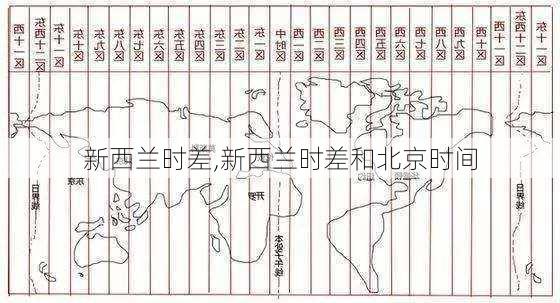 西十一区 东西十二区 东十一区 东十区 东九区 东八区 东七区 东六区 东五区 东四区 东三区 东二区 东一区 中时区 西一区 西二区 西三区 西四区 西五区 西六区 西七区 西八区 西九区 西十区 西十一区 东西十二区 东十一区
新西兰时差,新西兰时差和北京时间
东京
开罗
纽约
日界线
本初子午线
日界线